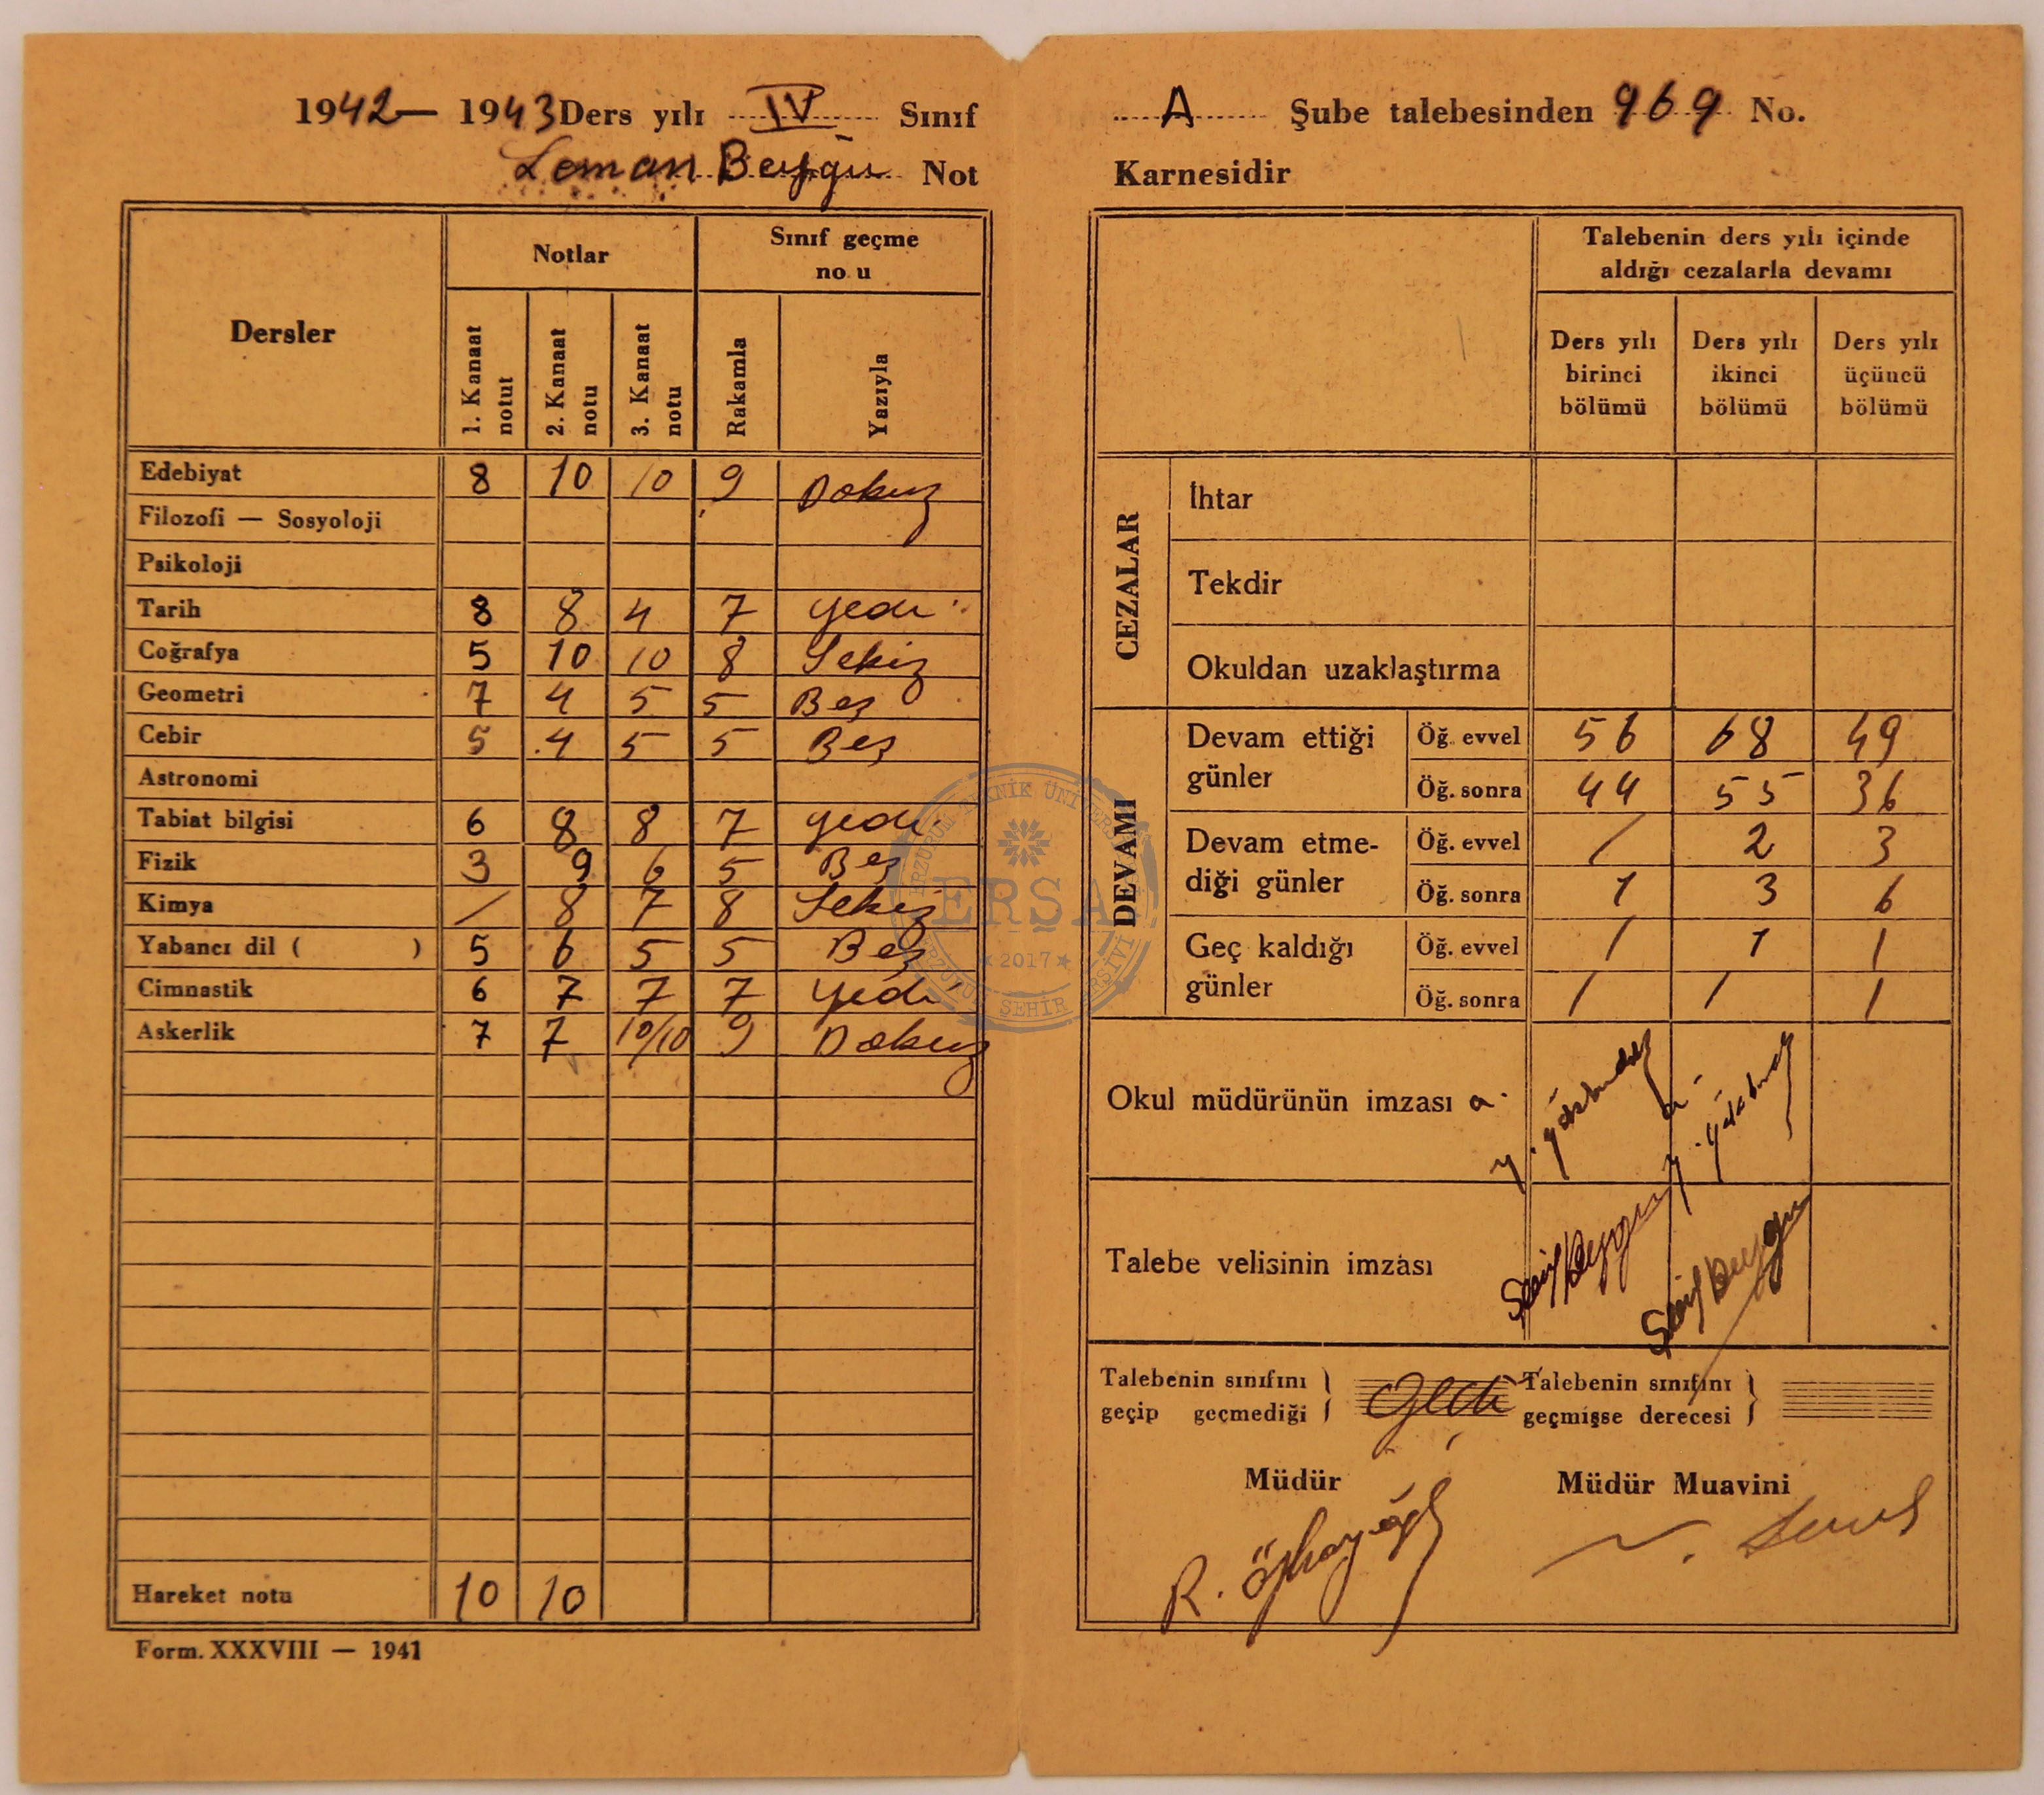 1942 — 1943 Ders yılı IV Sınıf
Leman Beygu Not
Dersler Notlar Sınıf geçme
no u
1. Kanaat notut 2. Kanaat notu 3. Kanaat notu Rakamla Yazıyla
Edebiyat 8 10 10 9 Dokuz
Filozofi — Sosyoloji
Psikoloji
Tarih 8 8 4 7 yedi
Coğrafya 5 10 10 8 Sekiz
Geometri 7 4 5 5 Beş
Cebir 5 4 5 5 Beş
Astronomi
Tabiat bilgisi 6 8 8 7 yedi
Fizik 3 9 6 5 Beş
Kimya / 8 7 8 Sekiz
Yabancı dil ( ) 5 6 5 5 Beş
Cimnastik 6 7 7 7 yedi
Askerlik 7 7 10/10 9 Dokuz
Hareket notu 10 10
Form. XXXVIII — 1941
A Şube talebesinden 969 No.
Karnesidir
Talebenin ders yılı içinde
aldığı cezalarla devamı
Ders yılı birinci bölümü
Ders yılı ikinci bölümü
Ders yılı üçüncü bölümü
CEZALAR
İhtar
Tekdir
Okuldan uzaklaştırma
DEVAMI
Devam ettiği günler
Öğ. evvel 56 68 49
Öğ. sonra 44 55 36
Devam etme-
diği günler
Öğ. evvel / 2 3
Öğ. sonra 1 3 6
Geç kaldığı günler
Öğ. evvel / 1 |
Öğ. sonra / / |
Okul müdürünün imzası a.
Talebe velisinin imzası Şerif Beygu Şerif Beygu
Talebenin sınıfını
geçip geçmediği } Geçti
Talebenin sınıfını
geçmişse derecesi }
Müdür Müdür Muavini
R.
ERZURUM TEKNİK ÜNİVERSİTESİ
ERŞA
★ 2017 ★
ERZURUM ŞEHİR ARŞİVİ